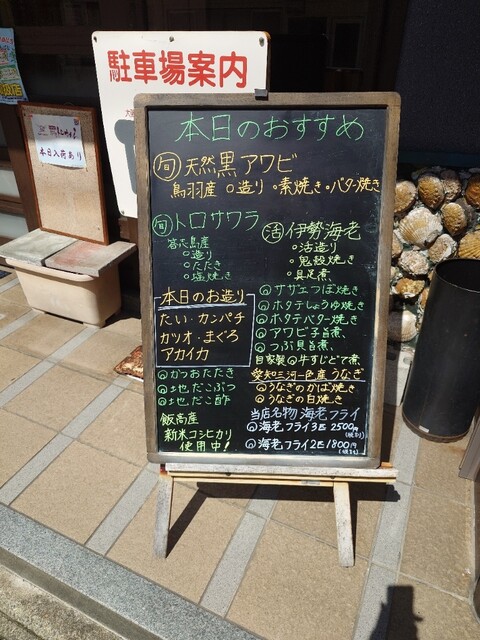 駐車場案内
本日入荷あり
本日のおすすめ
旬 天然黒アワビ
鳥羽産 ○造り ○素焼き ○バター焼き
旬 トロサワラ
答志島産
○造り
○たたき
○塩焼き
活 伊勢海老
○活造り
○鬼殻焼き
○具足煮
本日のお造り
たい・カンパチ
カツオ・まぐろ
アカイカ
サザエつぼ焼き
ホタテしょうゆ焼き
ホタテバター焼き
アワビ子旨煮
つぶ貝旨煮
自家製 牛すじどて煮
愛知三河一色産うなぎ
うなぎのかば焼き
うなぎの白焼き
かつおたたき
地だこぶつ
地だこ酢
飯高産
新米コシヒカリ
使用中!
当店名物 海老フライ
海老フライ3匹 2500円
(税別)
海老フライ2匹 1800円
(税別)